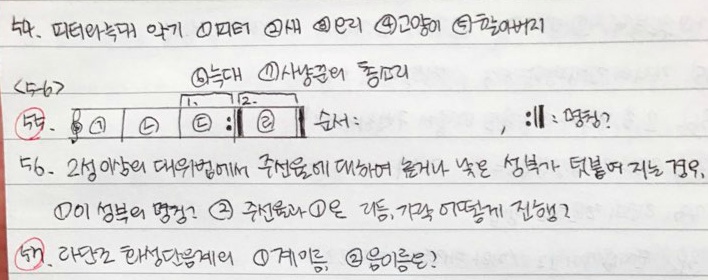 54. 피터와늑대 악기 ①피터 ②새 ③오리 ④고양이 ⑤할아버지
⑥늑대 ⑦사냥꾼의 총소리
<5-6>
1. 2.
55. ㉠ ㉡ ㉢ ㉣ 순서: , :‖ : 명칭?
56. 2성이상의 대위법에서 주선율에 대하여 높거나 낮은 성부가 덧붙여 지는 경우,
①이 성부의 명칭? ② 주선율과 ①은 리듬, 가락 어떻게 진행?
57. 라단조 화성단음계의 ①계이름, ②음이름은?